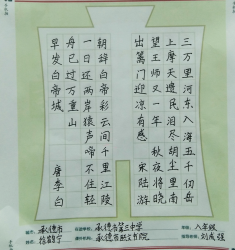 三万里河东入海五千仞岳
上摩天遗民泪尽胡尘里南
望王师又一年 秋夜将晓
出篱门迎凉有感 宋 陆游
朝辞白帝彩云间千里江陵
一日还两岸猿声啼不住轻
舟已过万重山
早发白帝城 唐 李白
承德市 承德市第三中学 八年级